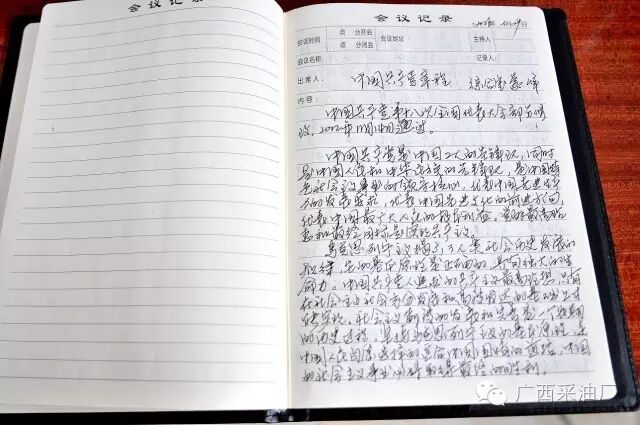 会议记录
会议记录
会议时间 点 分开会 会议地址 主持人
点 分闭会
会议名称: 记录人:
出席人: 中国共产党章程
内容:
中国共产党第十八次全国代表大会部分修
改, 2012年11月14日通过。
中国共产党是中国工人的先锋队, 同时
是中国人民和中华民族的先锋队, 是中国特
色社会主义事业的领导核心, 代表中国先进生产
力的发展要求, 代表中国先进文化的前进方向,
代表中国最广大人民的根本利益。党的最高理
想和最终目标是实现共产主义。
马克思列宁主义揭示了人类社会历史发展的
规律, 它的基本原理是正确的, 具有强大的生
命力。中国共产党人追求的共产主义最高理想, 只有
在社会主义社会充分发展和高度发达的基础上才
能实现。社会主义制度的发展和完善是一个长期
的历史过程。坚持马克思列宁主义的基本原理, 走
中国人民自愿选择的适合中国国情的道路, 中国
的社会主义事业必将取得最终的胜利。
广西采油厂